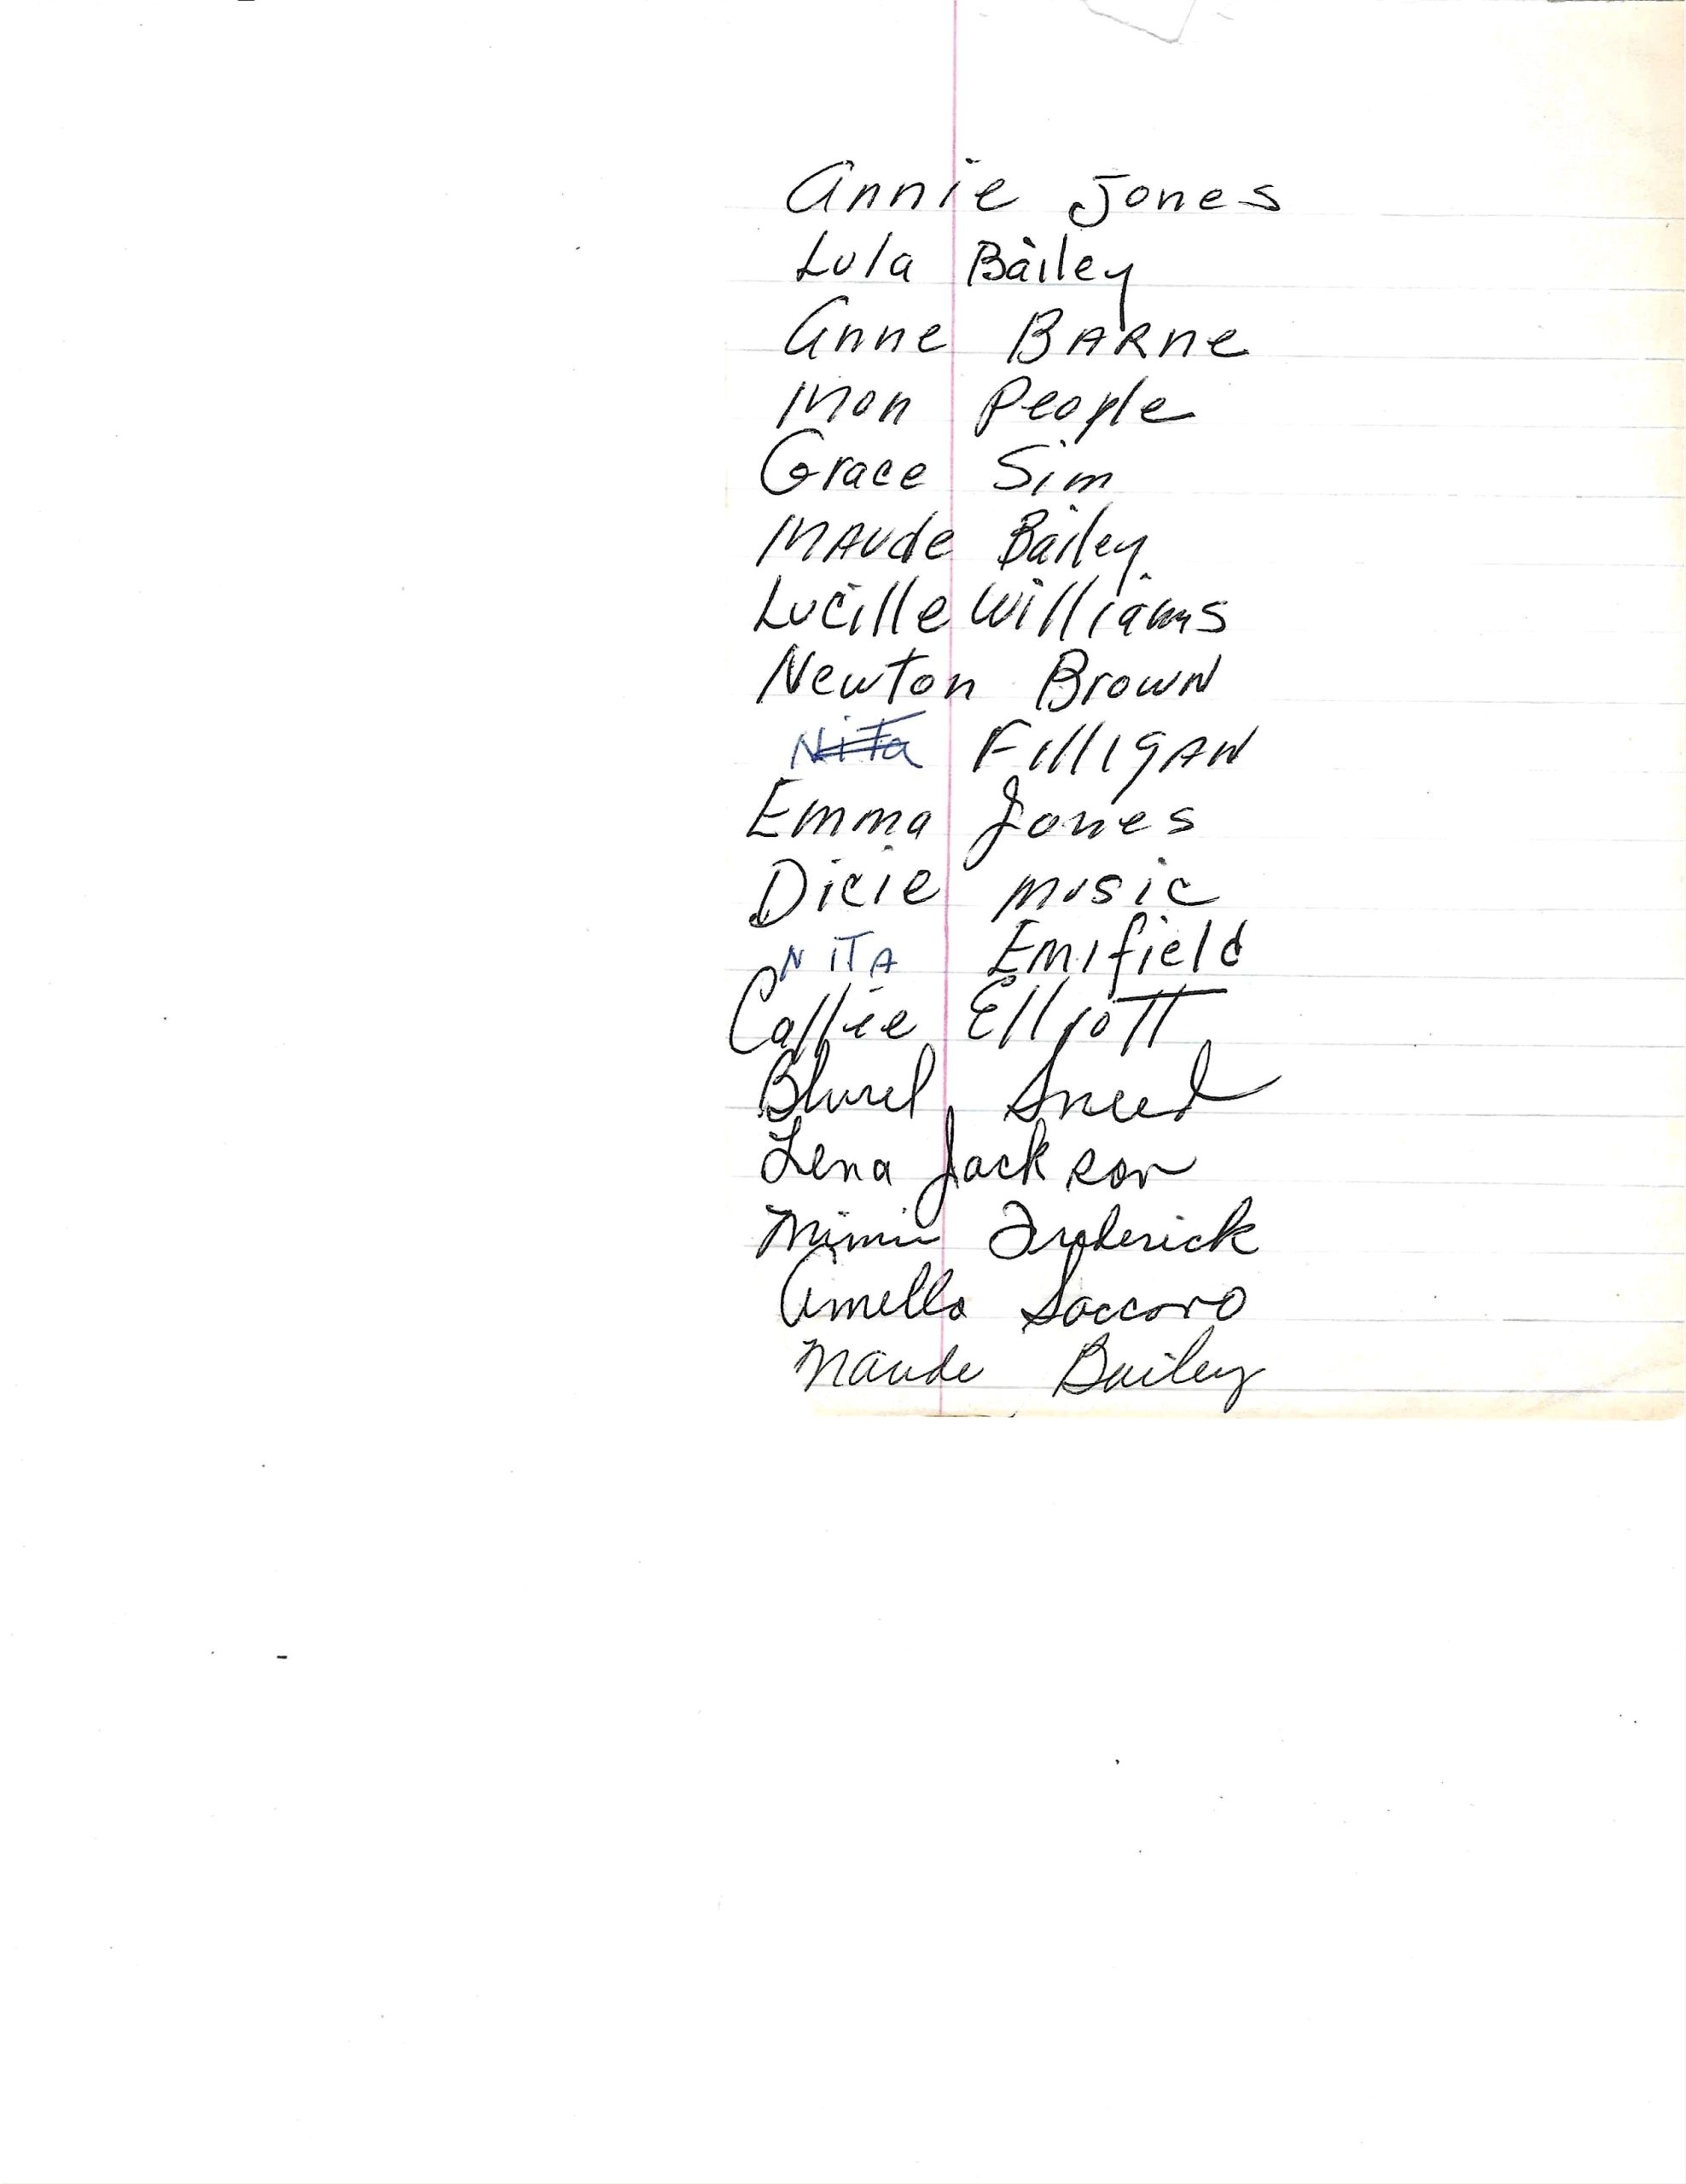 Annie Jones
Lula Bailey
Anne BARne
Mon People
Grace Sim
MAUde Bailey
Lucille Williams
Newton Brown
Nita Filligan
Emma Jones
Dicie Music
NiTA Emifield
Callie Elliott
Sneed
Lena Jackson
Frederick
Amella Soccoro
Maude Bailey